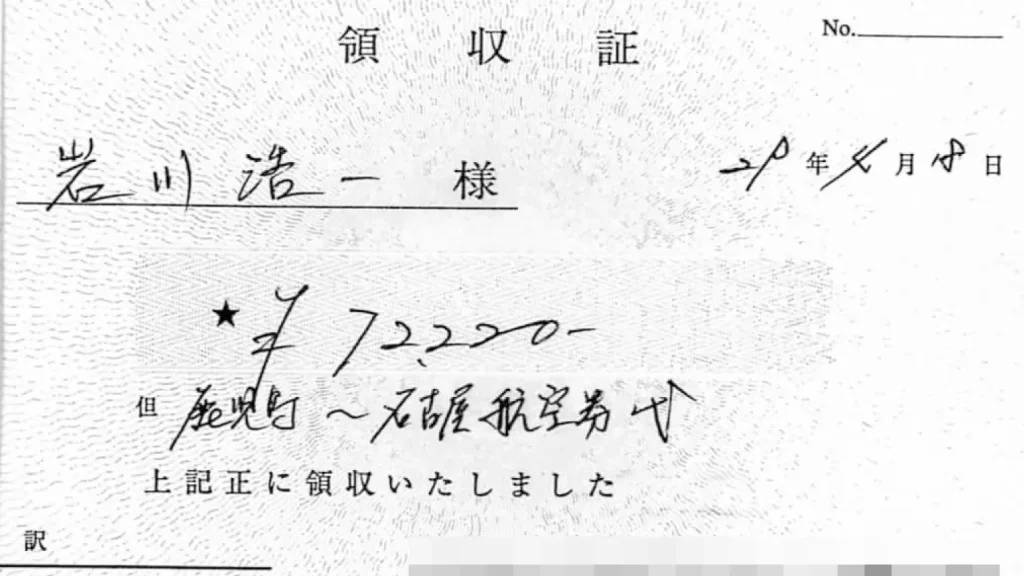 領収証
No.
岩川浩一 様
29年4月18日
★ ¥72,220-
但 鹿児島～名古屋航空券代
上記正に領収いたしました
訳